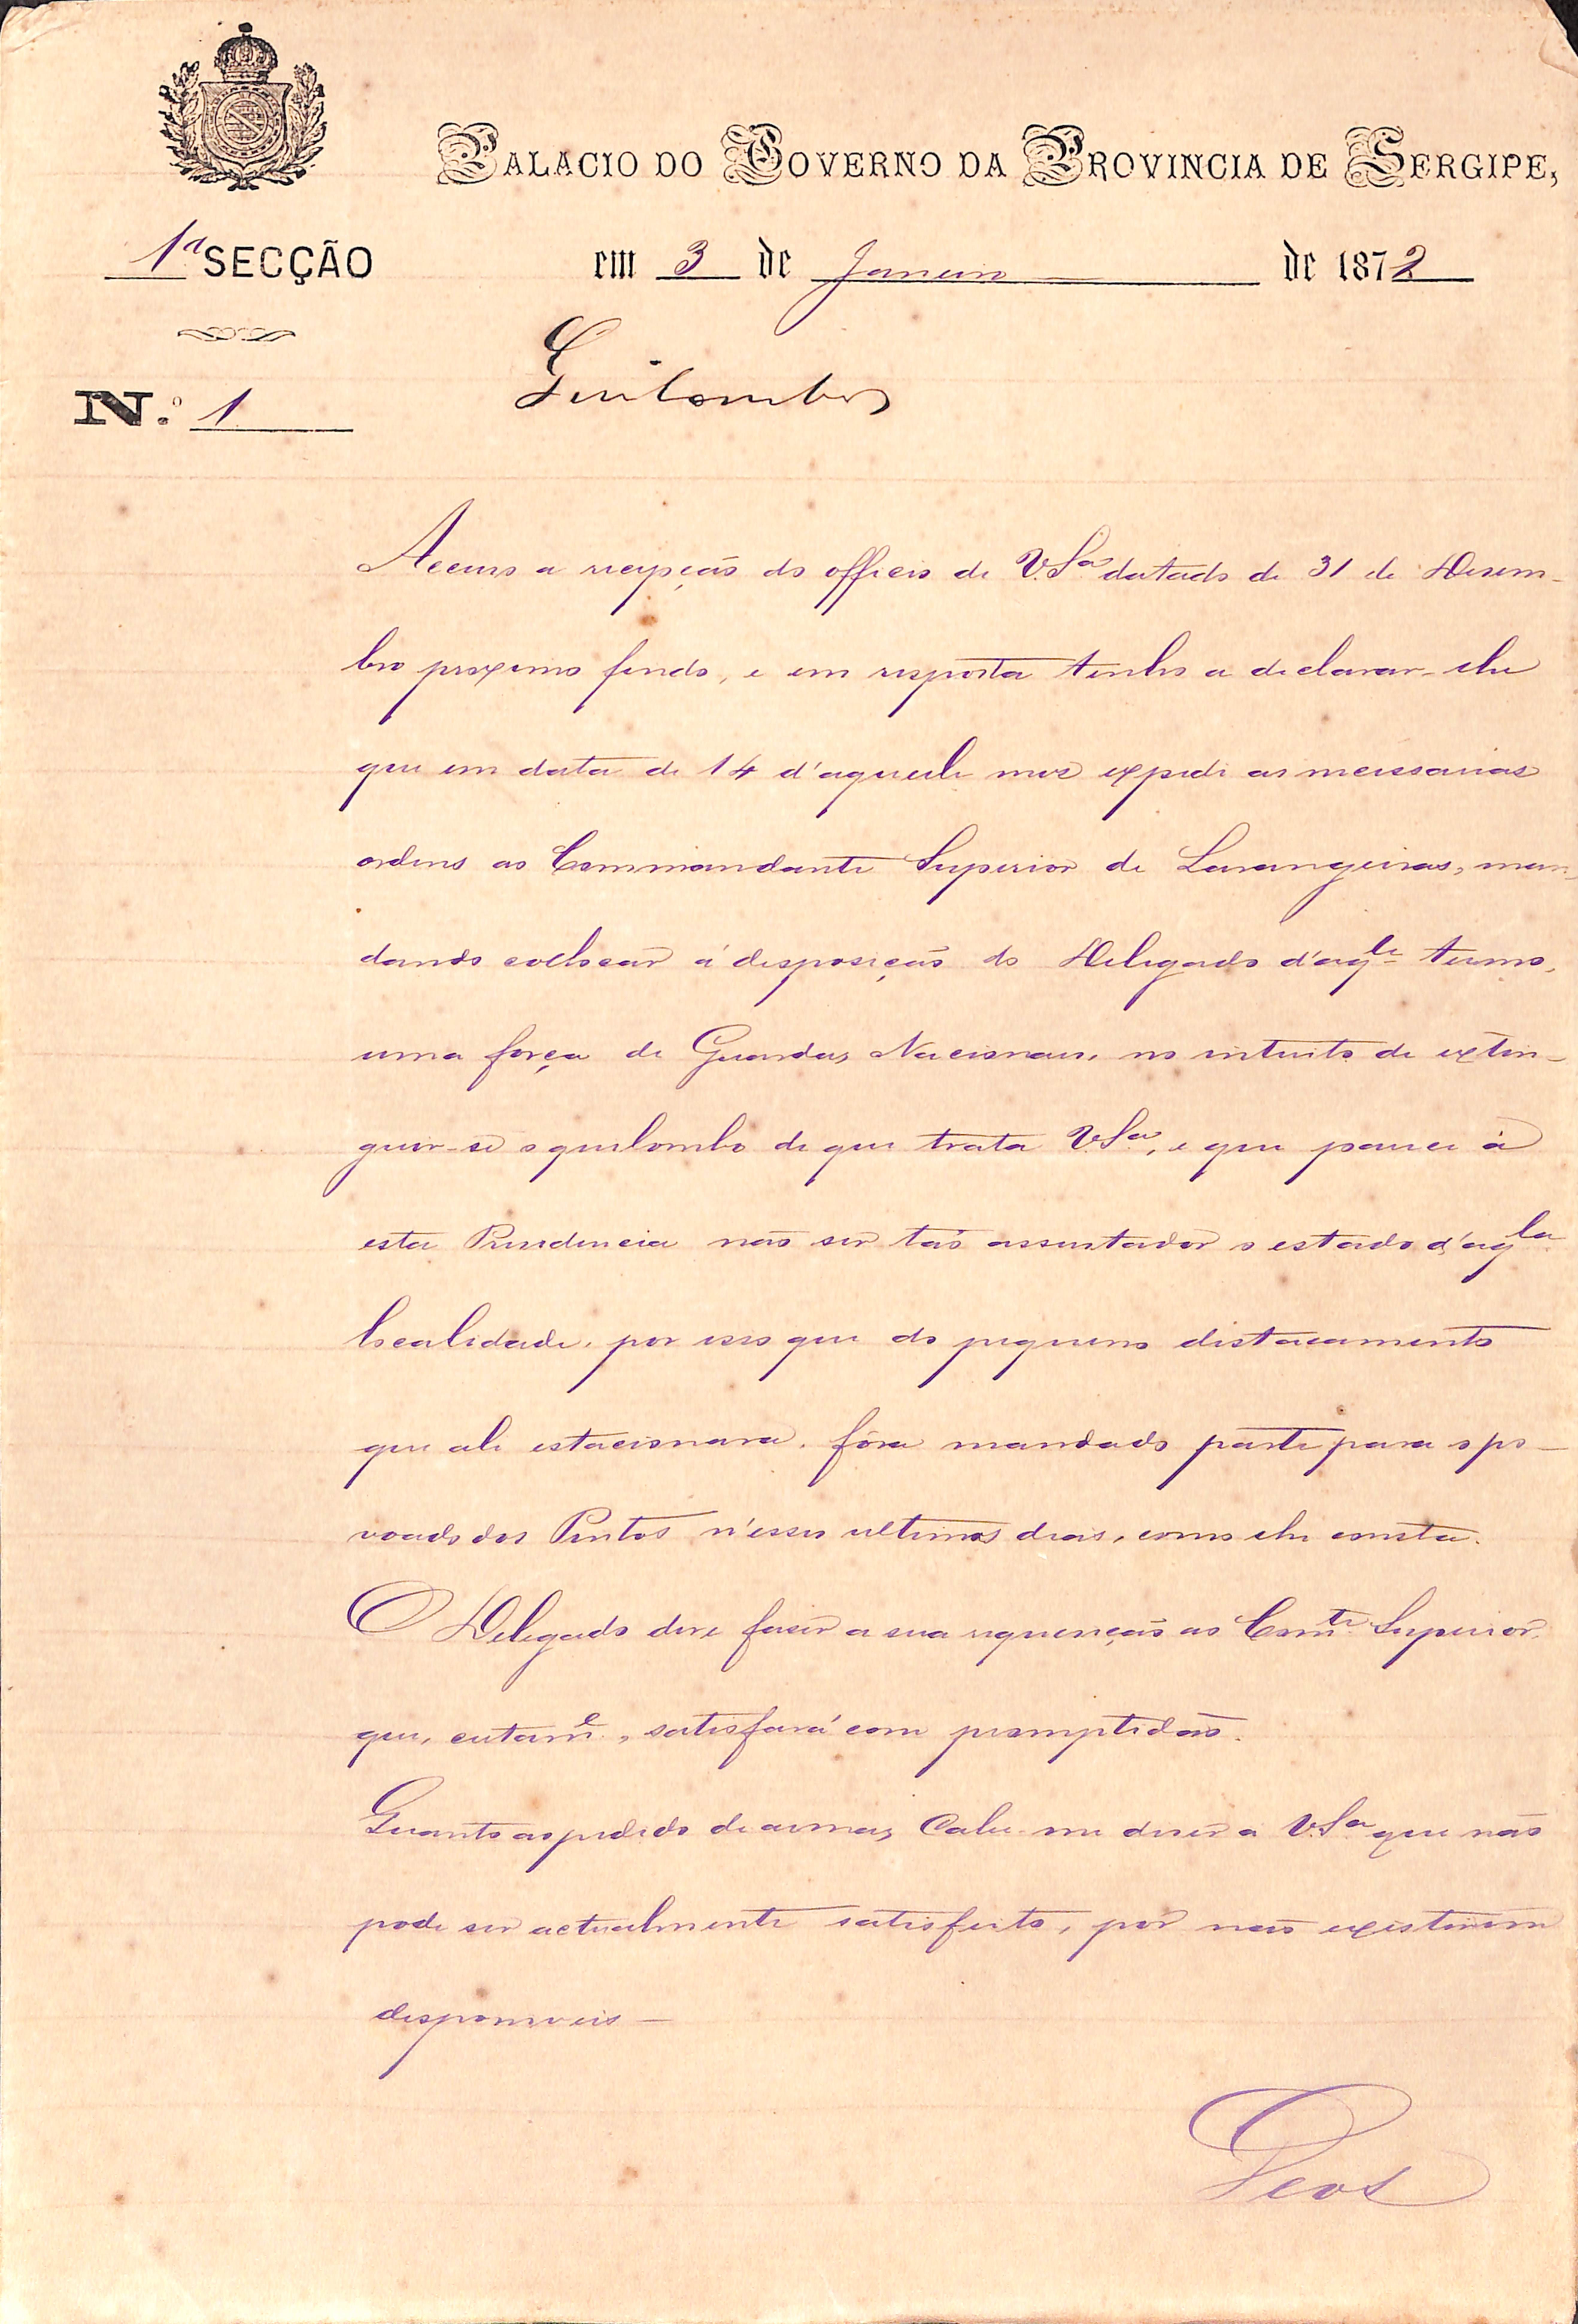 PALACIO DO GOVERNO DA PROVINCIA DE SERGIPE,
1ª SECÇÃO
em 3 de Janeiro de 1872
N.º 1
Quilombos
Accuso a recepção do officio de V.Sª datado de 31 de Desem-
bro proximo findo, e em resposta tenho a declarar-lhe
que em data de 14 d'aquelle mez expedi as necessarias
ordens ao Commandante Superior de Larangeiras, man-
dando collocar á disposição do Delegado d'aqle termo,
uma força de Guardas Nacionaes, no intuito de extin-
guir-se o quilombo de que trata V.Sª, e que parece á
esta Presidencia não ser tão assustador o estado d'aqla
localidade, por isso que do pequeno distacamento
que ali estacionara, fôra mandado parte para o po-
voado dos Pintos n'esses ultimos dias, como lhe consta.
O Delegado deve faser a sua requisição ao Comte Superior,
que, certame, satisfará com promptidão.
Quanto ao pedido de armas, Cabe-me diser a V.Sª que não
pode ser actualmente satisfeito, por não existirem
disponiveis —